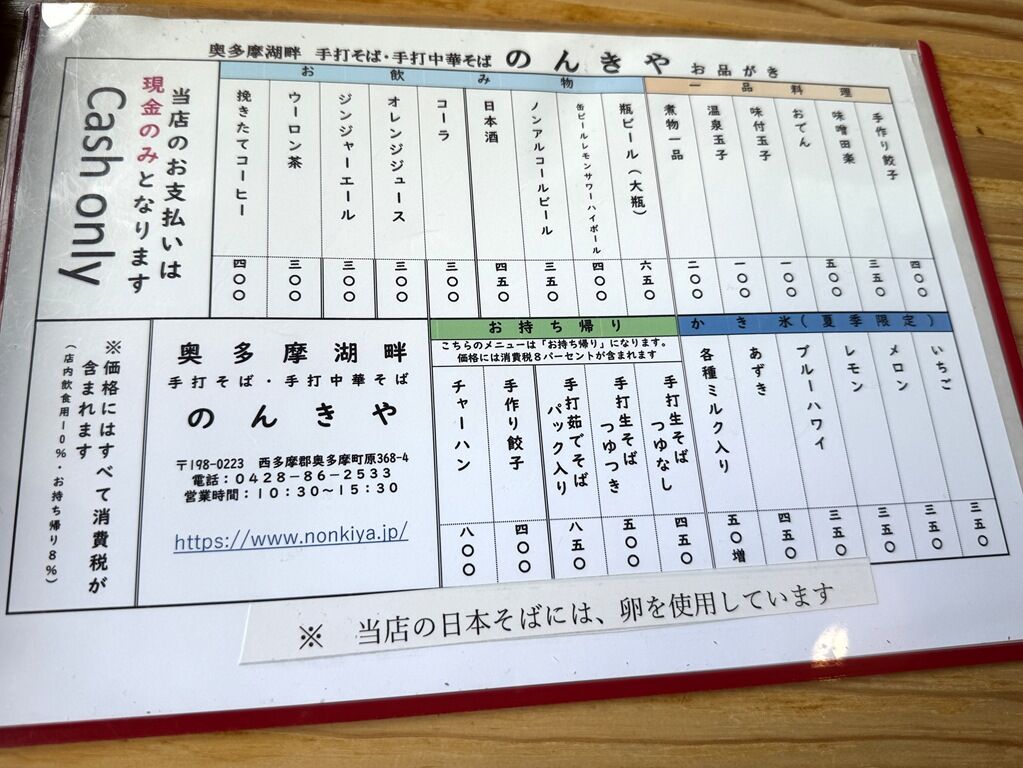 奥多摩湖畔 手打そば・手打中華そば のんきや お品がき
一品料理
手作り餃子 四〇〇
味噌田楽 三五〇
おでん 五〇〇
味付玉子 一〇〇
温泉玉子 一〇〇
煮物一品 二〇〇
お飲み物
瓶ビール(大瓶) 六五〇
缶ビールレモンサワーハイボール 四〇〇
ノンアルコールビール 三五〇
日本酒 四五〇
コーラ 三〇〇
オレンジジュース 三〇〇
ジンジャーエール 三〇〇
ウーロン茶 三〇〇
挽きたてコーヒー 四〇〇
当店のお支払いは
現金のみとなります
Cash only
かき氷(夏季限定)
いちご 三五〇
メロン 三五〇
レモン 三五〇
ブルーハワイ 三五〇
あずき 四五〇
各種ミルク入り 五〇増
お持ち帰り
こちらのメニューは「お持ち帰り」になります。
価格には消費税8パーセントが含まれます
手打生そば
つゆなし 四五〇
手打生そば
つゆつき 五〇〇
手打茹でそば
パック入り 八五〇
手作り餃子 四〇〇
チャーハン 八〇〇
奥多摩湖畔
手打そば・手打中華そば
のんきや
〒198-0223 西多摩郡奥多摩町原368-4
電話:0428-86-2533
営業時間:10:30~15:30
https://www.nonkiya.jp/
※価格にはすべて消費税が
含まれます
(店内飲食用10%・お持ち帰り8%)
※ 当店の日本そばには、卵を使用しています